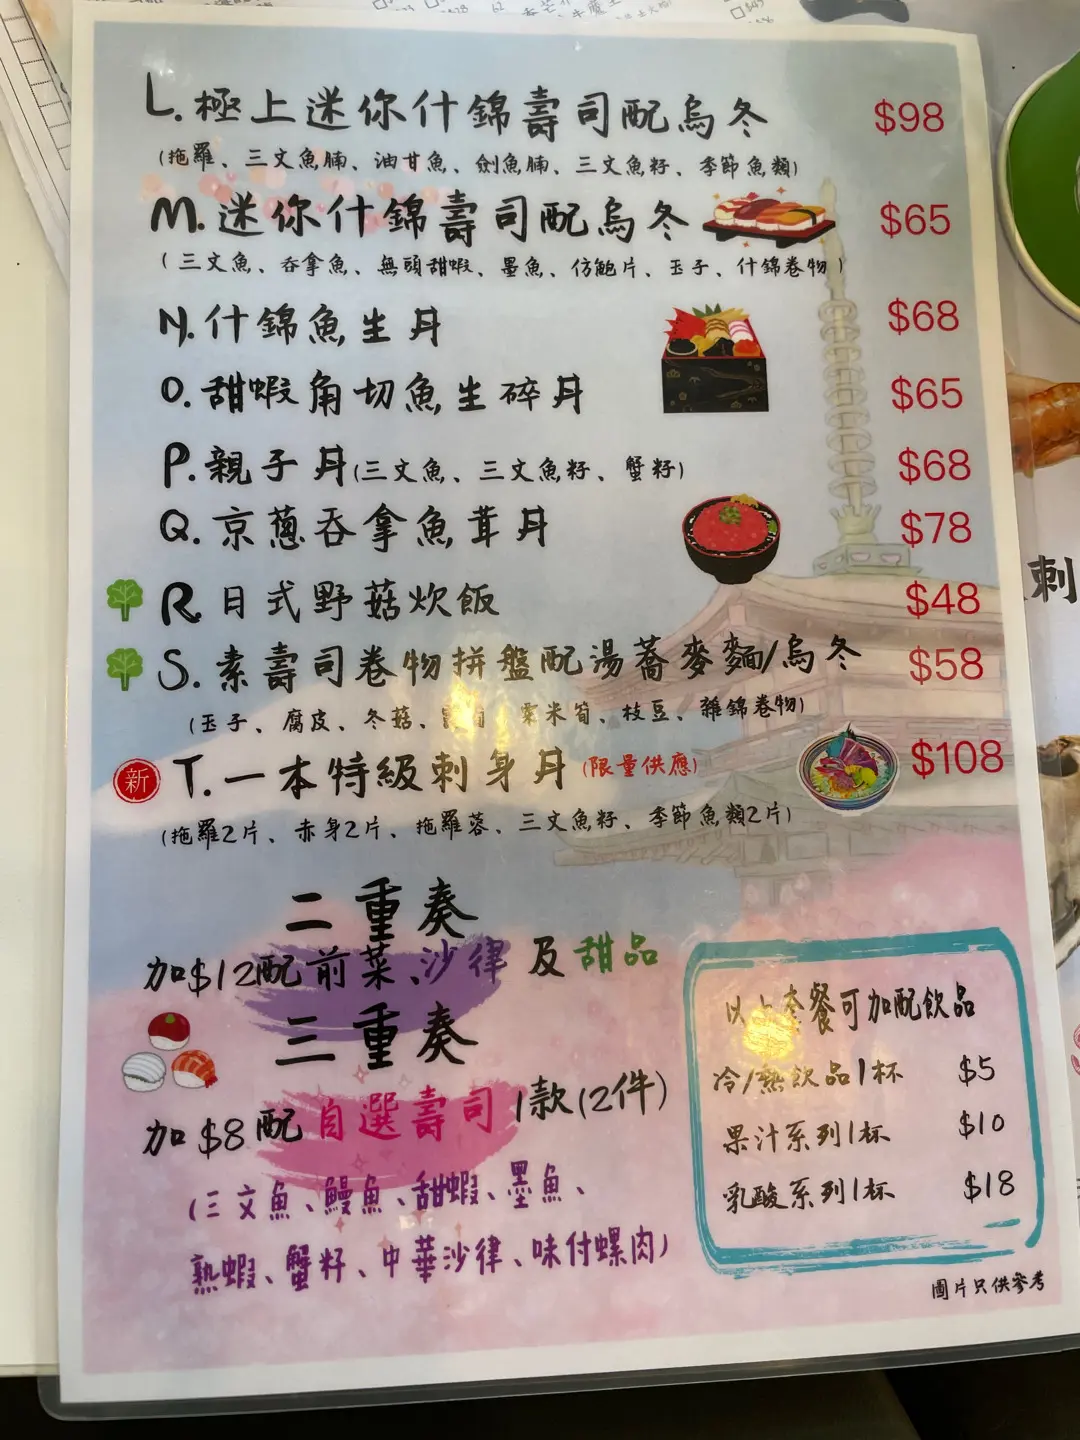 L. 極上迷你什錦壽司配烏冬 $98
(拖羅、三文魚腩、油甘魚、劍魚腩、三文魚籽、季節魚類)
M. 迷你什錦壽司配烏冬 $65
(三文魚、吞拿魚、無頭甜蝦、墨魚、仿鮑片、玉子、什錦卷物)
N. 什錦魚生丼 $68
O. 甜蝦角切魚生碎丼 $65
P. 親子丼(三文魚、三文魚籽、蟹籽) $68
Q. 京蔥吞拿魚茸丼 $78
R. 日式野菇炊飯 $48
S. 素壽司卷物拼盤配湯蕎麥麵/烏冬 $58
(玉子、腐皮、冬菇、粟米筍、枝豆、雜錦卷物)
新 T. 一本特級刺身丼 (限量供應) $108
(拖羅2片、赤身2片、拖羅蓉、三文魚籽、季節魚類2片)
二重奏
加$12配前菜、沙律及甜品
三重奏
加$8配自選壽司1款(2件)
(三文魚、鰻魚、甜蝦、墨魚、
熟蝦、蟹籽、中華沙律、味付螺肉)
以上套餐可加配飲品
冷/熱飲品1杯 $5
果汁系列1杯 $10
乳酸系列1杯 $18
圖片只供參考
刺